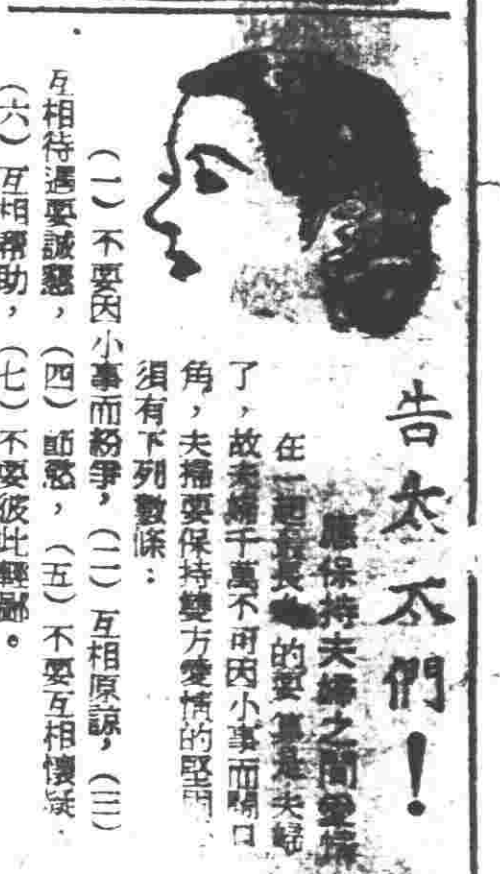 告太太們！
應保持夫婦之間愛情
在一起最長的要算是夫婦
了，故夫婦千萬不可因小事而鬧口
角，夫婦要保持雙方愛情的堅固、
須有下列數條：
（一）不要因小事而紛爭，（二）互相原諒，（三）
互相待遇要誠懇，（四）節慾，（五）不要互相懷疑，
（六）互相幫助，（七）不要彼此輕鄙。